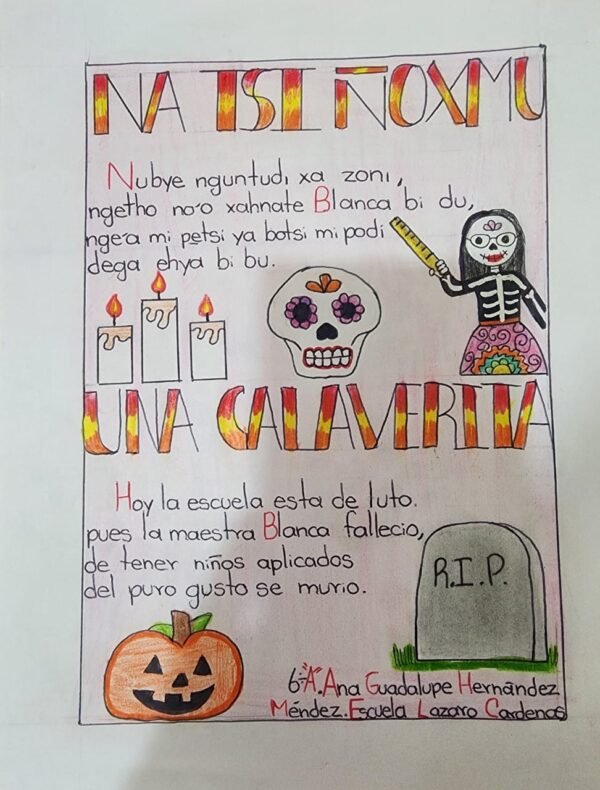 NA TSI ÑOXMU
Nubye nguntudi xa zoni,
ngetho no'o xahnate Blanca bi du,
nge'a mi petsi ya botsi mi podi
dega ehya bi bu.
UNA CALAVERITA
Hoy la escuela esta de luto.
pues la maestra Blanca fallecio,
de tener niños aplicados
del puro gusto se murio.
R.I.P.
6-"A". Ana Guadalupe Hernández
Méndez. Escuela Lazaro Cardenas